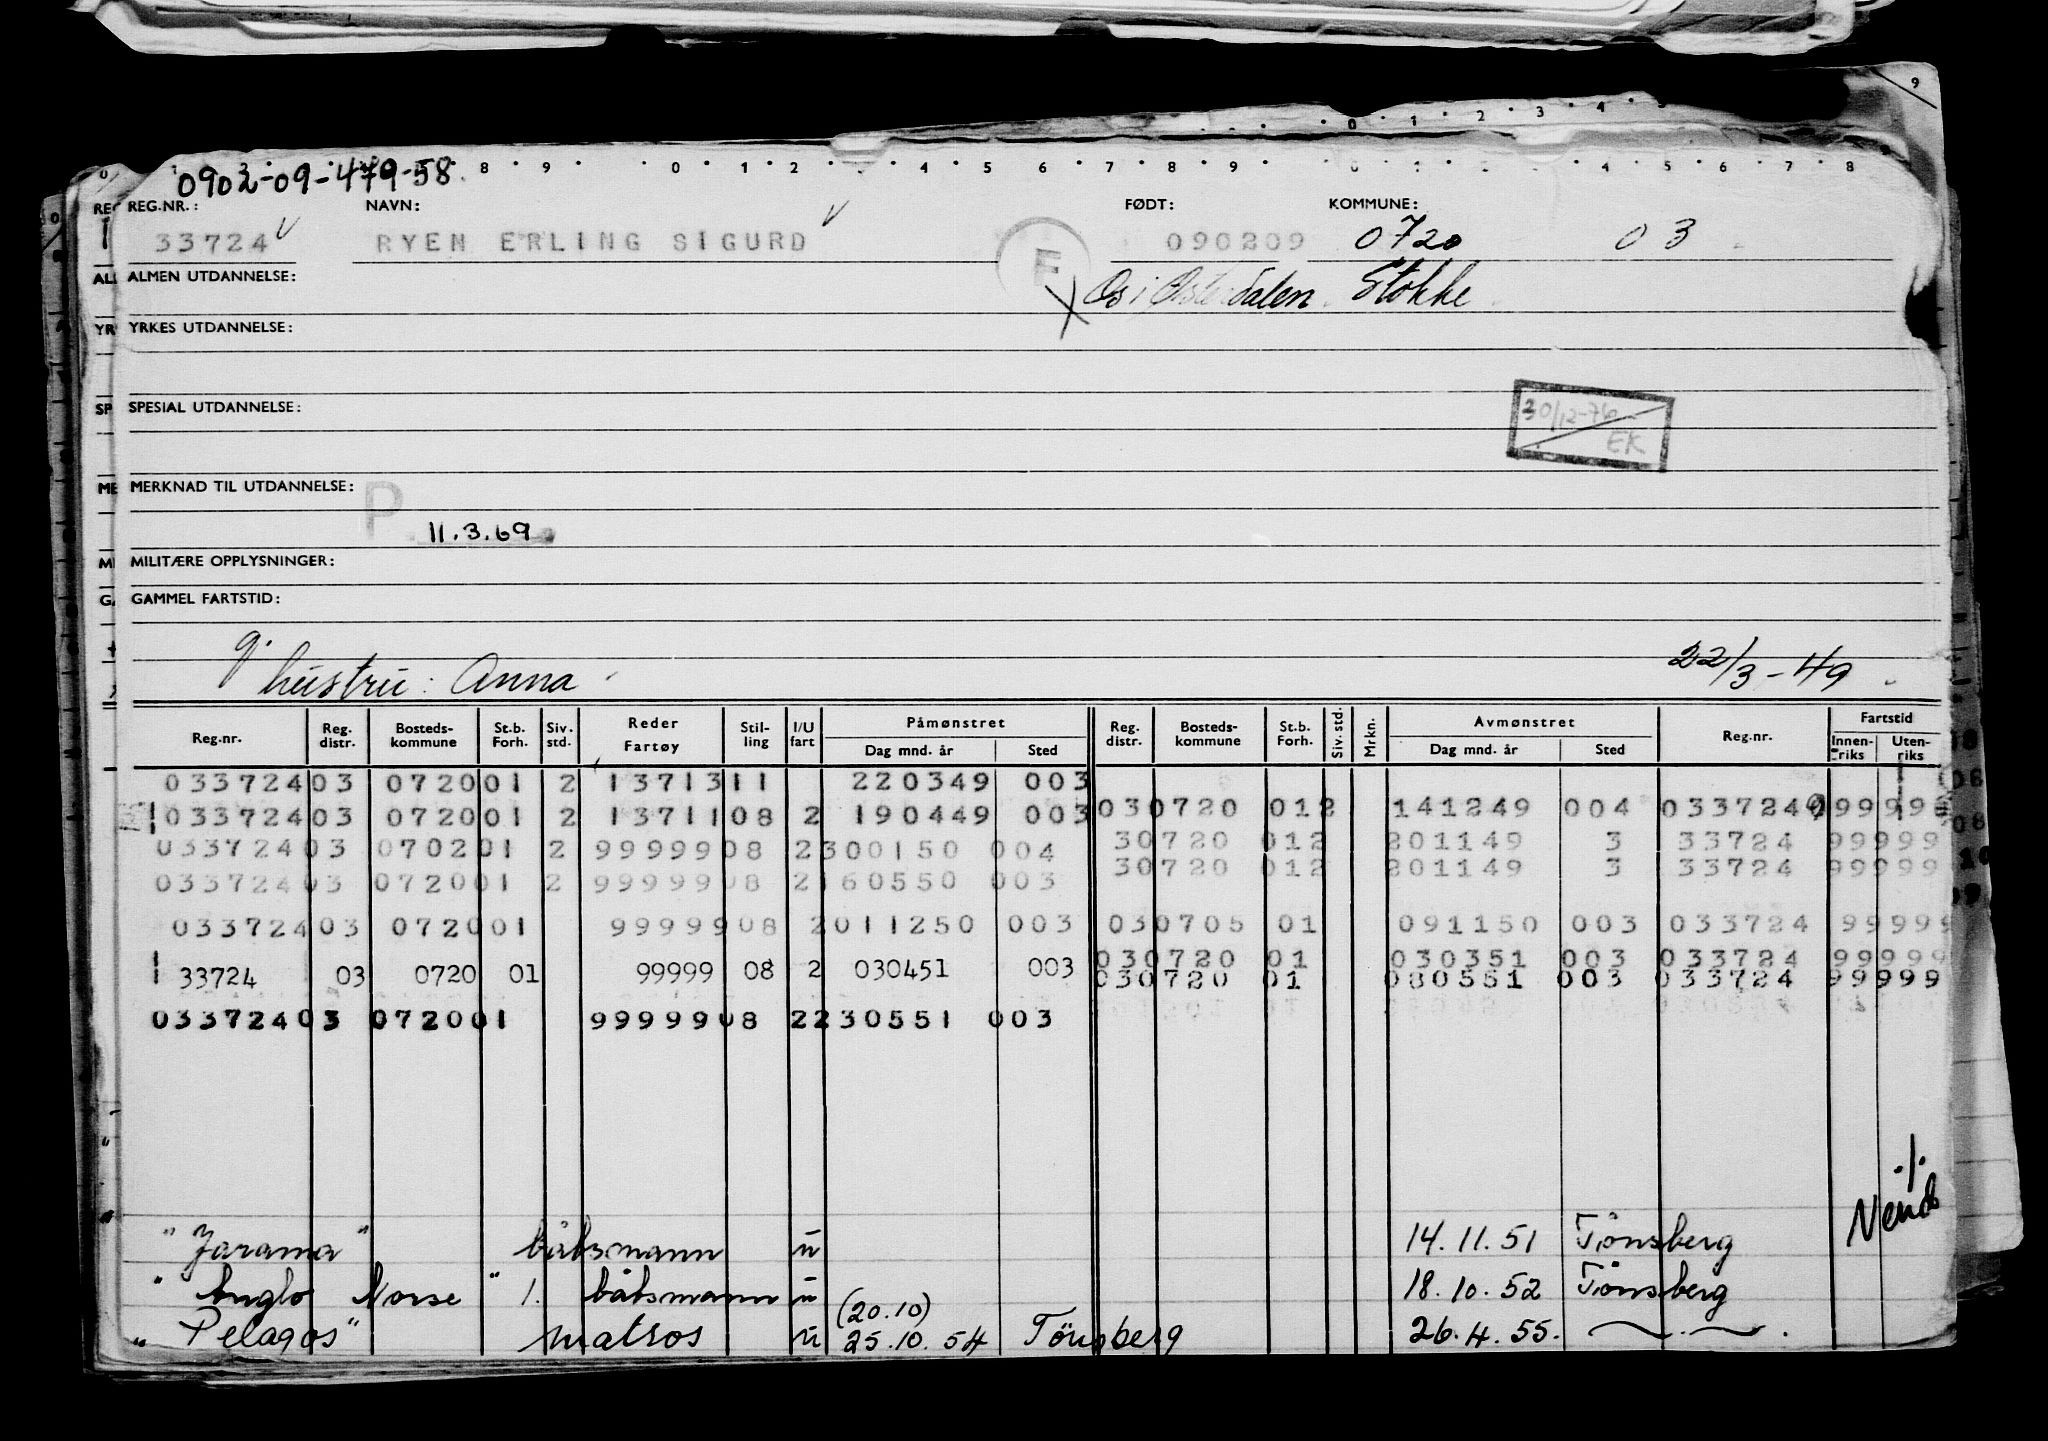 0902-09-479-58.
REG.NR.: NAVN: FØDT: KOMMUNE:
33724 RYEN ERLING SIGURD E 090209 0720 03
ALMEN UTDANNELSE: Os i Østerdalen. Stokke
YRKES UTDANNELSE:
SPESIAL UTDANNELSE:
30/12-76
EK
MERKNAD TIL UTDANNELSE: P
11.3.69
MILITÆRE OPPLYSNINGER:
GAMMEL FARTSTID:
g. hustru: Anna 22/3-49
Reg.nr. Reg. distr. Bosteds-kommune St.b. Forh. Siv. std. Reder Fartøy Stil-ling I/U fart Påmønstret Dag mnd. år Sted Reg. distr. Bosteds-kommune St.b. Forh. Siv. std. Mrkn. Avmønstret Dag mnd. år Sted Reg.nr. Fartstid Innen-riks Uten-riks
033724 03 0720 01 2 13713 11 220349 003
033724 03 0720 01 2 13711 08 2 190449 003 03 0720 01 2 141249 004 033724 99999
033724 03 0702 01 2 99999 08 2 300150 004 3 0720 01 2 201149 3 33724 99999
033724 03 0720 01 2 99999 08 2 160550 003 3 0720 01 2 201149 3 33724 99999
033724 03 0720 01 99999 08 2 011250 003 03 0705 01 091150 003 033724 99999
03 0720 01 030351 003 033724 99999
33724 03 0720 01 99999 08 2 030451 003 03 0720 01 080551 003 033724 99999
033724 03 0720 01 99999 08 2 230551 003
./.
Vend
"Jarama" båtsmann u 14.11.51 Tönsberg
"Anglo Norse" 1. båtsmann u 18.10.52 Tönsberg
(20.10)
"Pelagos" matros u 25.10.54 Tönsberg 26.4.55. —"—.